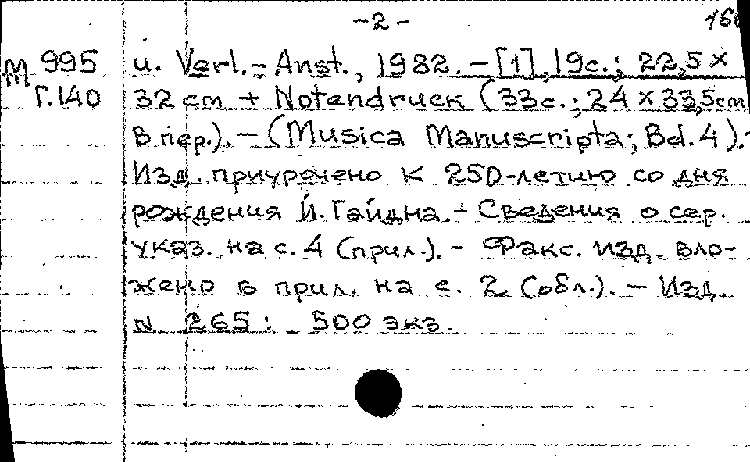 -2-
M 995 u. Verl.-Anst., 1982. - [1], 19 с.; 22,5 ×
Г.140 32 cm + Notendruck (33 с.; 24 × 33,5 cm
в пер.). - (Musica Manuscripta; Bd. 4).
Изд. приурочено к 250-летию со дня
рождения Й. Гайдна. - Сведения о сер.
указ. на с. 4 (прил.). - Факс. изд. вло-
жено в прил. на с. 2 (обл.). - Изд.
N 265: 500 экз.